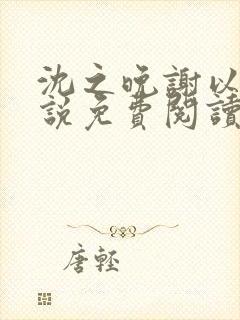 沈之晚謝以
說免費閱讀
唐輕